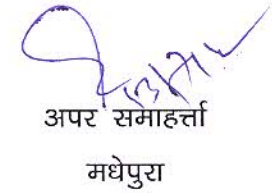 अपर समाहर्त्ता
मधेपुरा